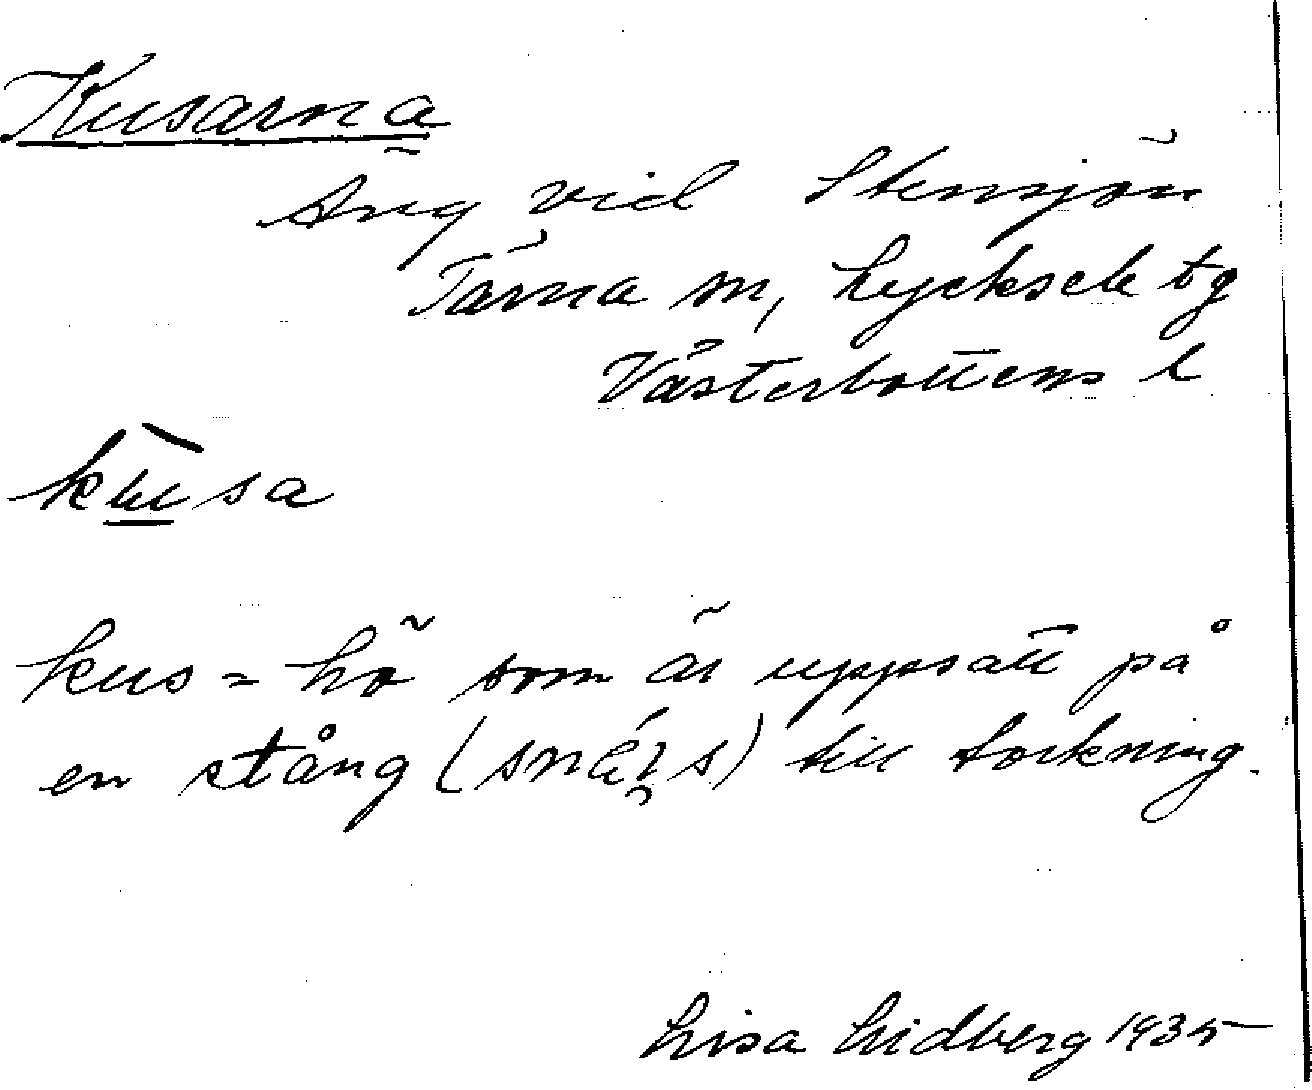 Kusarna
Äng vid Stensjön
Tärna sn, Lycksele tg
Västerbottens l
kusa
kus = hö som är uppsatt på
en stång (snärs) till torkning.
Lisa Lidberg 1935